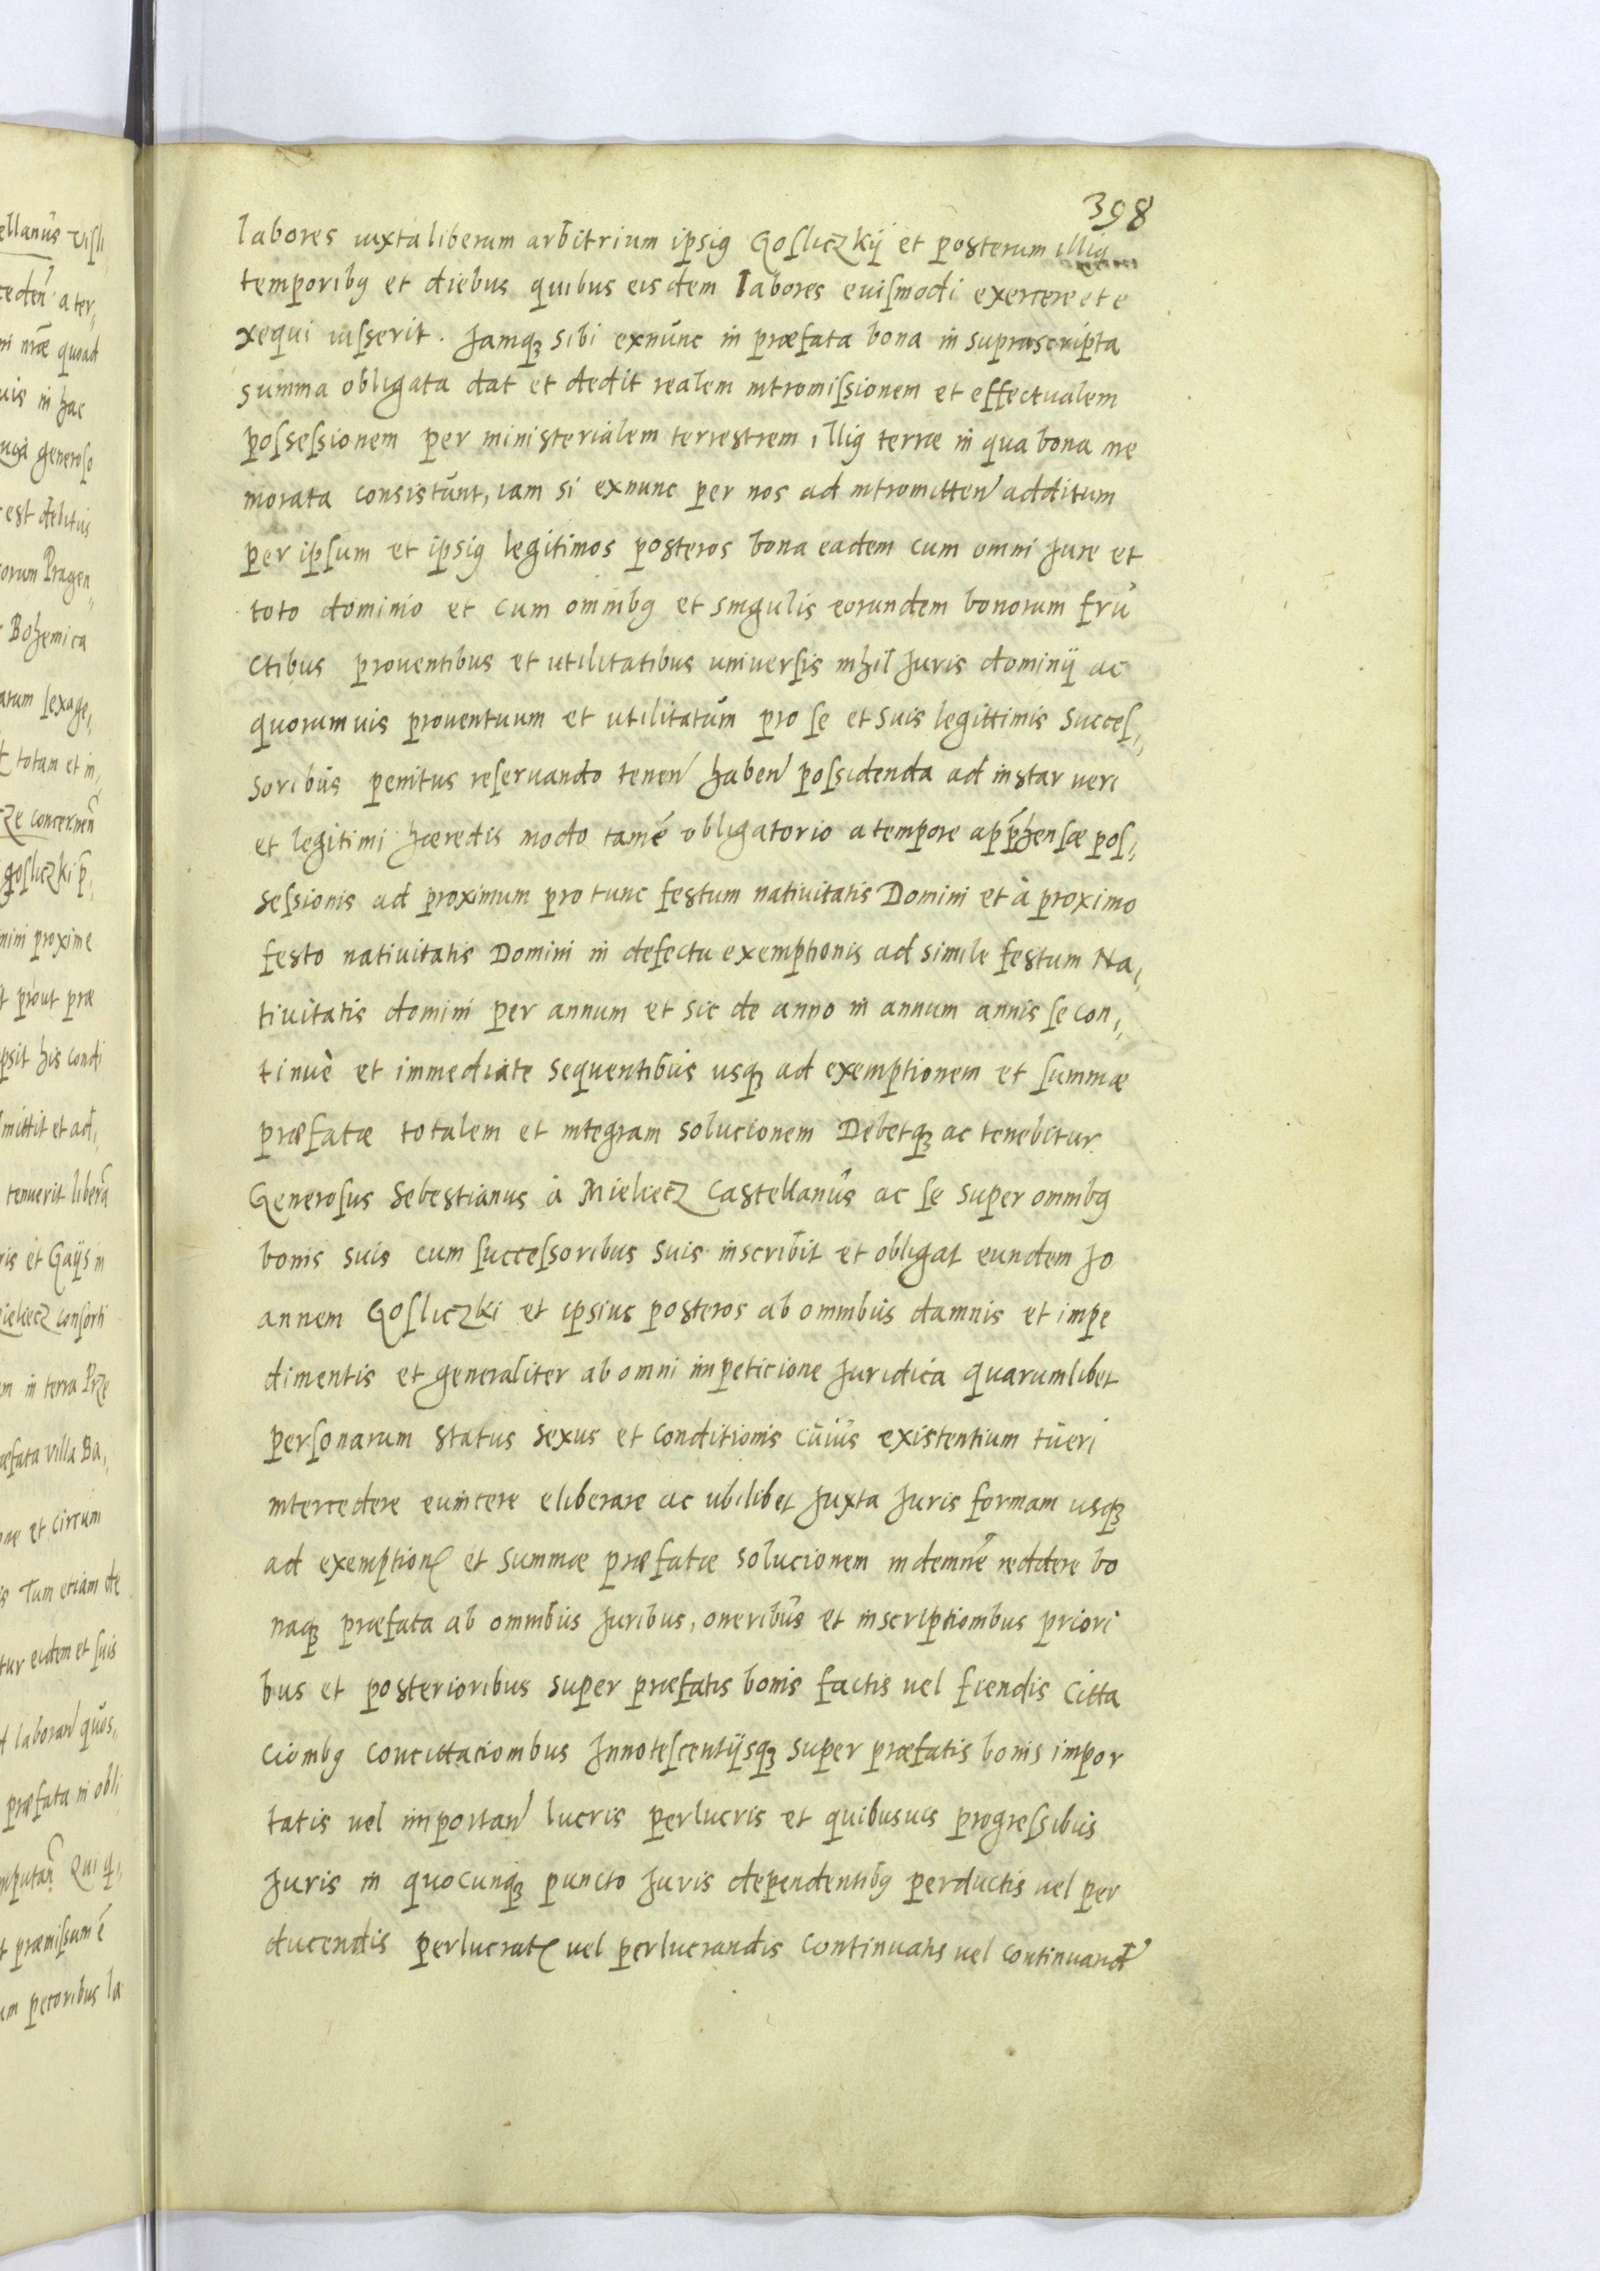 398
labores iuxta liberum arbitrium ipsiꝰ Gosliczkÿ et posterum illiꝰ
temporibꝰ et diebus quibus eisdem labores euismodi exercere et e
xequi iusserit. Jamqꝫ sibi exnunc in præfata bona in suprascripta
summa obligata dat et dedit realem intromissionem et effectualem
possessionem per ministerialem terrestrem illiꝰ terræ in qua bona me
morata consistunt, iam si exnunc per nos ad intromitten̄ additum
per ipsum et ipsiꝰ legitimos posteros bona eadem cum omni Jure et
toto dominio et cum omnibꝰ et singulis eorundem bonorum fru
ctibus prouentibus et utilitatibus uniuersis nihil Juris dominÿ ac
quorumuis prouentuum et utilitatum pro se et suis legittimis succes„
soribus penitus reseruando tenen̄ haben̄ possidenda ad instar ueri
et legitimi hæredis modo tamē obligatorio a tempore app̄hensæ pos„
sessionis ad proximum pro tunc festum natiuitatis Domini et à proximo
festo natiuitatis Domini in defectu exemptionis ad simile festum Na„
tiuitatis domini per annum et sic de anno in annum annis se con„
tinuè et immediate sequentibus usqꝫ ad exemptionem et summæ
præfatæ totalem et integram solucionem Debetqꝫ ac tenebitur
Generosus Sebestianus à Mieliecz Castellanus ac se super omnibꝰ
bonis suis cum successoribus suis inscribit et obligat eundem Jo
annem Gosliczki et ipsius posteros ab omnibus damnis et impe
dimentis et generaliter ab omni impeticione Juridica quarumlibet
personarum status sexus et conditionis cuius existentium tueri
intercedere euincere eliberare ac ubilibet Juxta Juris formam usqꝫ
ad exemptionē et summæ præfatæ solucionem indemnē reddere bo
naqꝫ præfata ab omnibus Juribus, oneribus et inscriptionibus priori
bus et posterioribus super præfatis bonis factis uel fiendis Citta
cionibꝰ concittacionibus Innotescentÿsqꝫ super præfatis bonis impor
tatis uel importan̄ lucris perlucris et quibusuis progressibus
Juris in quocunqꝫ puncto Juris dependentibꝰ perductis uel per
ducendis perlucratꝭ uel perlucrandis continuatis uel continuand̄